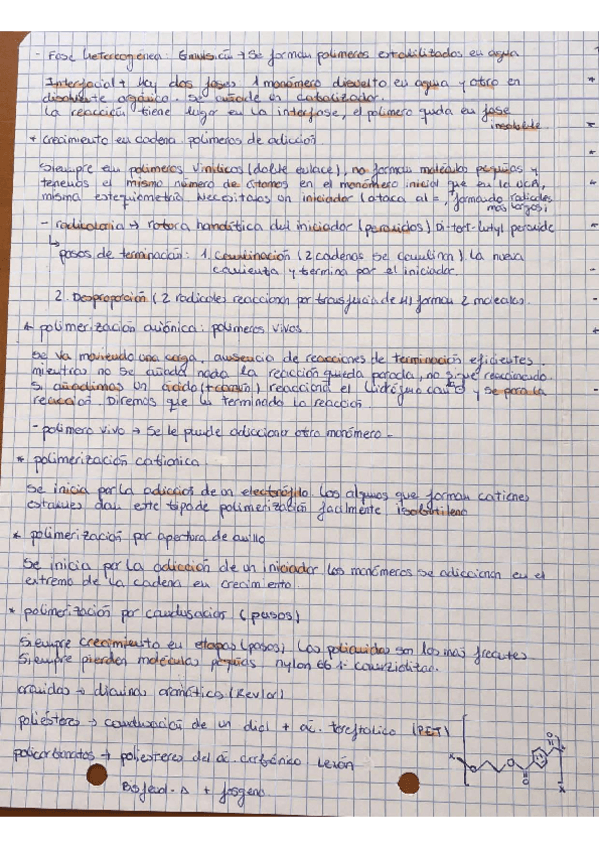 - Fase heterogénea: Emulsión → Se forman polímeros estabilizados en agua
Interfacial + Hay dos fases 1 monómero disuelto en agua y otro en
disolvente orgánico. Se añade un catalizador.
La reacción tiene lugar en la interfase, el polímero queda en fase
insoluble.
* Crecimiento en cadena. polímeros de adición
Siempre en polímeros vinílicos (doble enlace), no forman moléculas pequeñas y
tenemos el mismo número de átomos en el monómero inicial que en la UCR,
misma estequiometría. Necesitamos un iniciador (ataca al =, formando radicales
más largos)
- radicalaria → rotura homolítica del iniciador (peróxidos) Di-tert-butyl peroxide
↳ pasos de terminación: 1. Combinación (2 cadenas se combinan). La nueva
comienza y termina por el iniciador.
2. Desproporción (2 radicales reaccionan por transferencia de H) forman 2 moléculas.
* polimerización aniónica: polímeros vivos
Se va moviendo una carga, ausencia de reacciones de terminación eficientes.
mientras no se añada nada la reacción queda parada, no sigue reaccionando.
Si añadimos un ácido (+común) reacciona el hidrógeno y se para la
reacción. Diremos que ha terminado la reacción.
- polímero vivo → Se le puede adiccionar otro monómero -
* polimerización cationica
Se inicia por la adición de un electrófilo. Los alquenos que forman cationes
estables dan este tipo de polimerización facilmente isobutileno
* polimerización por apertura de anillo
Se inicia por la adición de un iniciador los monómeros se adiccionan en el
extremo de la cadena en crecimiento
* polimerización por condensación (pasos)
Siempre crecimiento en etapas (pasos) Las poliamidas son las más frecuentes
Siempre pierden moléculas pequeñas nylon 66
aramidas → diamina aromática (Kevlar)
poliésteres → condensación de un diol + ác. tereftalico (PET)
policarbonatos → poliesteres del ác. carbónico Lexan
Bisfenol-A + fosgeno